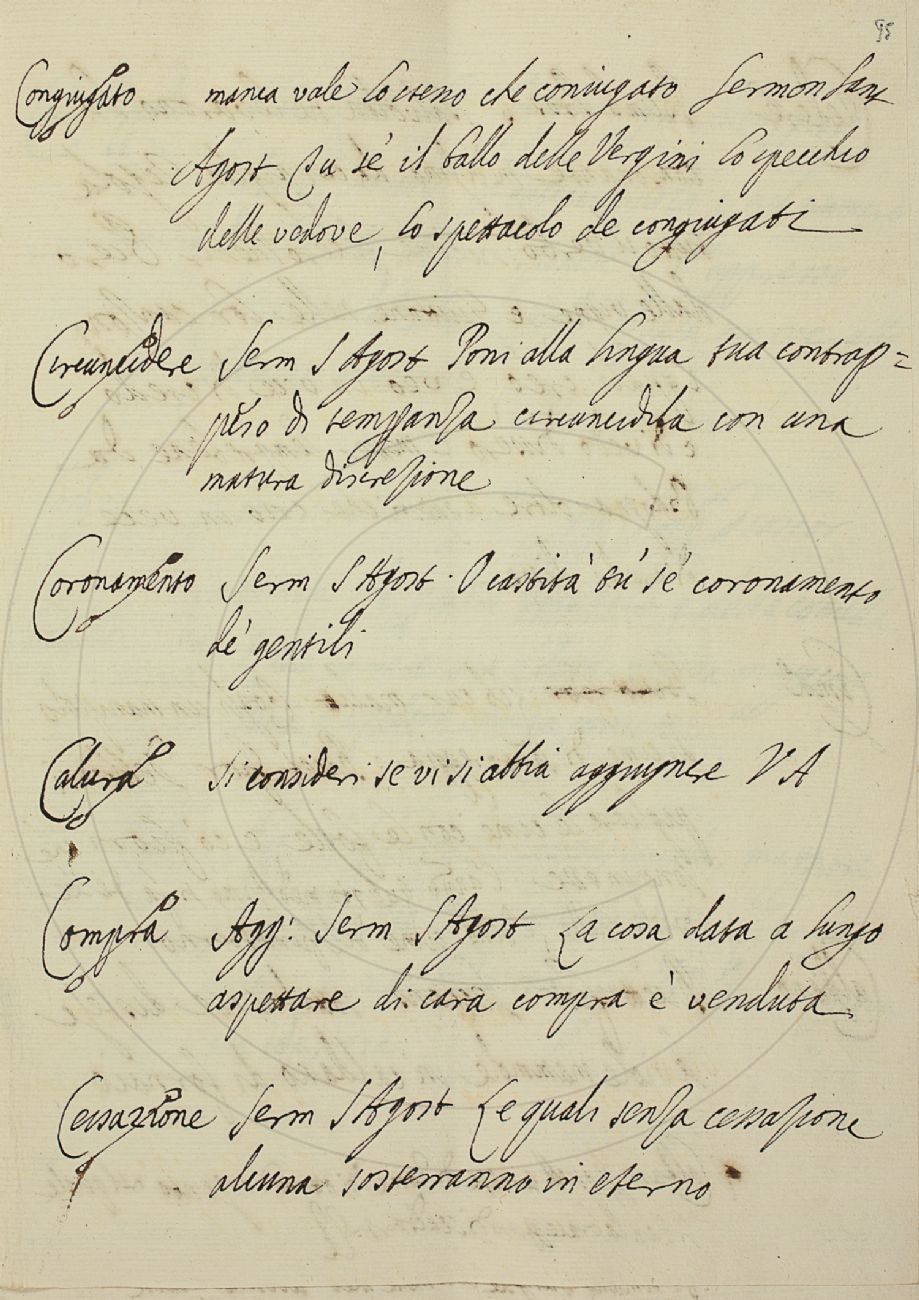 95
Congiugato manca vale lo steso che coniugato Sermon Sant
Agost Tu sè il ballo delle Vergini lo specchio
delle vedove, lo spettacolo de congiugati
Circuncidere Serm S Agost Poni alla lingua tua contrap=
peso di temperanza circuncidila con una
matura discrezione
Coronamento Serm S Agost. O castità tù sè coronamento
dè gentili
Calura si consideri se vi si abbia aggiugnere V A
Compra Agg: Serm S Agost La cosa data a lungo
aspettare di cara compra è venduta
Cessazione Serm S Agost Le quali senza cessazione
alcuna sosterranno in eterno